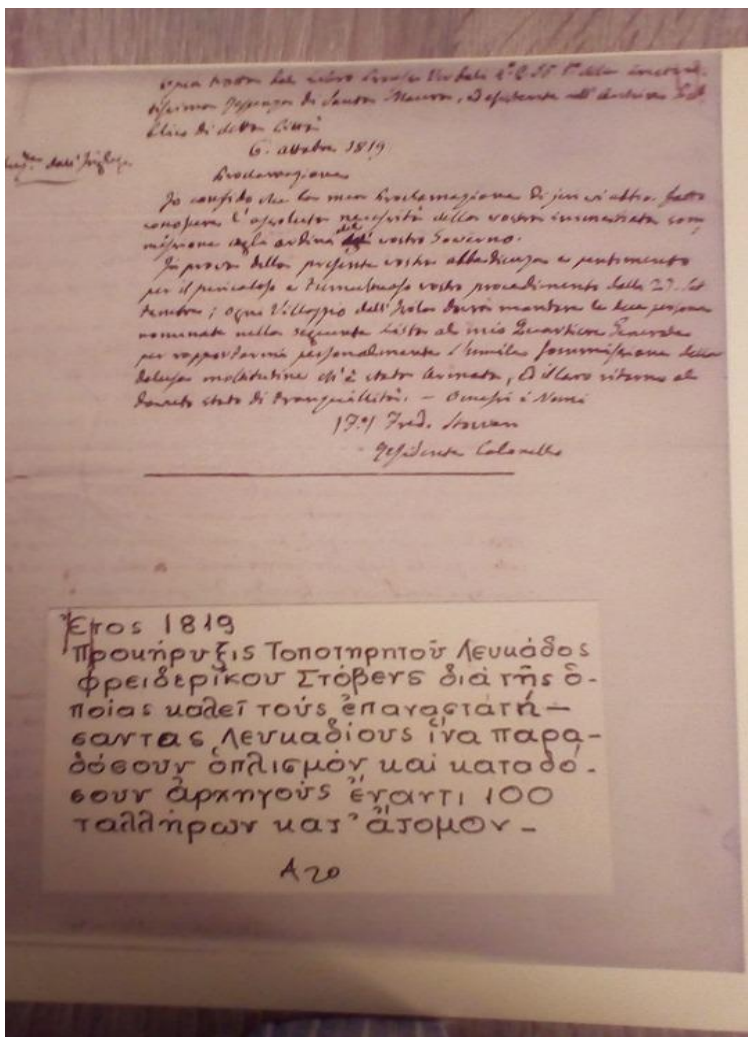 dal libro Processi Verbali
di Santa Maura, Esistente nell'Archivio
di detta Città
6. ottobre 1819
Proclamazione
Io confido che la mia Proclamazione di jeri vi abbia fatto
conoscere l'assoluta necessità della vostra immediata som
missione agli ordini del vostro Governo.
In prova della presente vostra obbedienza e pentimento
per il pericoloso e tumultuoso vostro procedimento delli 27. Set
tembre; ogni Villaggio dell'Isola dovrà mandare le due persone
nominate nella seguente lista al mio Quartiere Generale
per rapportarmi personalmente l'umile sommissione della
delusa moltitudine ch'è stata armata, ed il loro ritorno al
stato di tranquillità. — Omessi i Nomi
Fred. Stovin
Residente Colonello
Ἔτος 1819
Προκήρυξις Τοποτηρητοῦ Λευκάδος
Φρειδερίκου Στόβενς διά τῆς ὁ-
ποίας καλεῖ τούς ἐπαναστατή-
σαντας Λευκαδίους ἵνα παρα-
δόσουν ὁπλισμόν καί καταδό-
σουν ἀρχηγούς ἔναντι 100
ταλλήρων κατ' ἄτομον -
A20